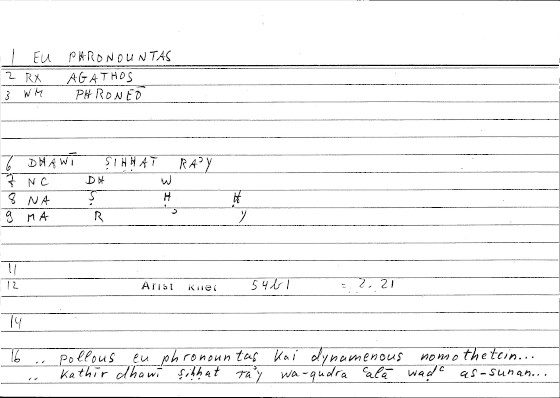 1 EU PHRONOUNTAS
2 RX AGATHOS
3 WM PHRONEŌ
6 DHAWĪ ṢIḤḤAT RAʾY
7 NC DH W
8 NA Ṣ Ḥ Ḥ
9 MA R ʾ Y
11
12 Arist Rhet 54b1 = 2.21
14
16 .. pollous eu phronountas kai dynamenous nomothetein...
.. kathīr dhawī ṣiḥḥat raʾy wa-qudra ʿalā waḍʿ as-sunan...